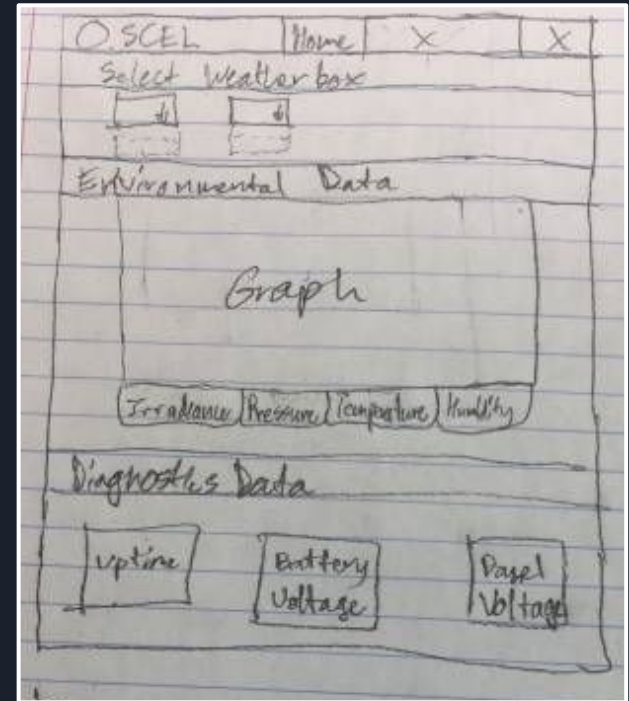 SCEL Home X X
Select Weatherbox
Environmental Data
Graph
Irradiance Pressure Temperature Humidity
Diagnostics Data
Uptime Battery Voltage Panel Voltage